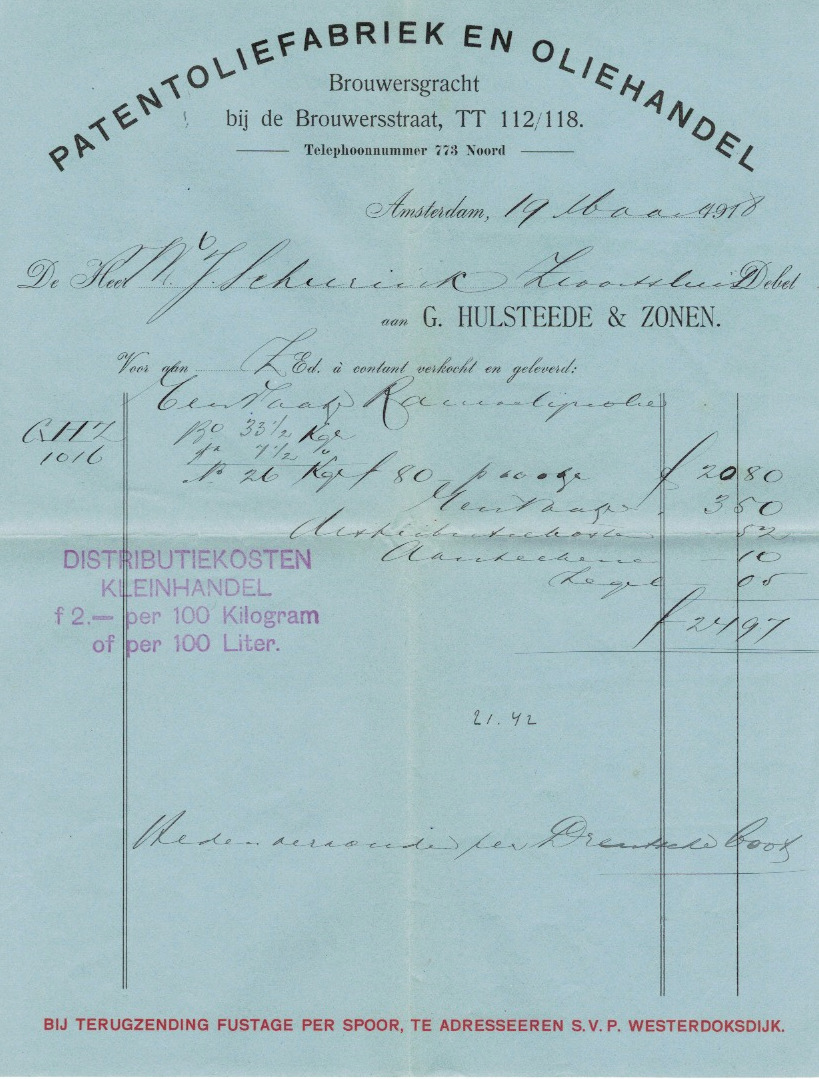 PATENTOLIEFABRIEK EN OLIEHANDEL
Brouwersgracht
bij de Brouwersstraat, TT 112/118.
Telephoonnummer 773 Noord
Amsterdam, 19 1918
De Heer Schurink Zwartsluis Debet
aan G. HULSTEEDE & ZONEN.
Voor aan Z Ed. à contant verkocht en geleverd:
Een Vaatje
GHZ Bo 33 1/2 Kgr
1016 Ta 7 1/2 "
No 26 Kgr f 80 f 20 80
Een Vaatje 3 50
distributiekosten 52
10
Zegel 05
DISTRIBUTIEKOSTEN
KLEINHANDEL
f 2.— per 100 Kilogram
of per 100 Liter.
f 24 97
21.42
Heden verzonden per Drentsche boot
BIJ TERUGZENDING FUSTAGE PER SPOOR, TE ADRESSEEREN S.V.P. WESTERDOKSDIJK.